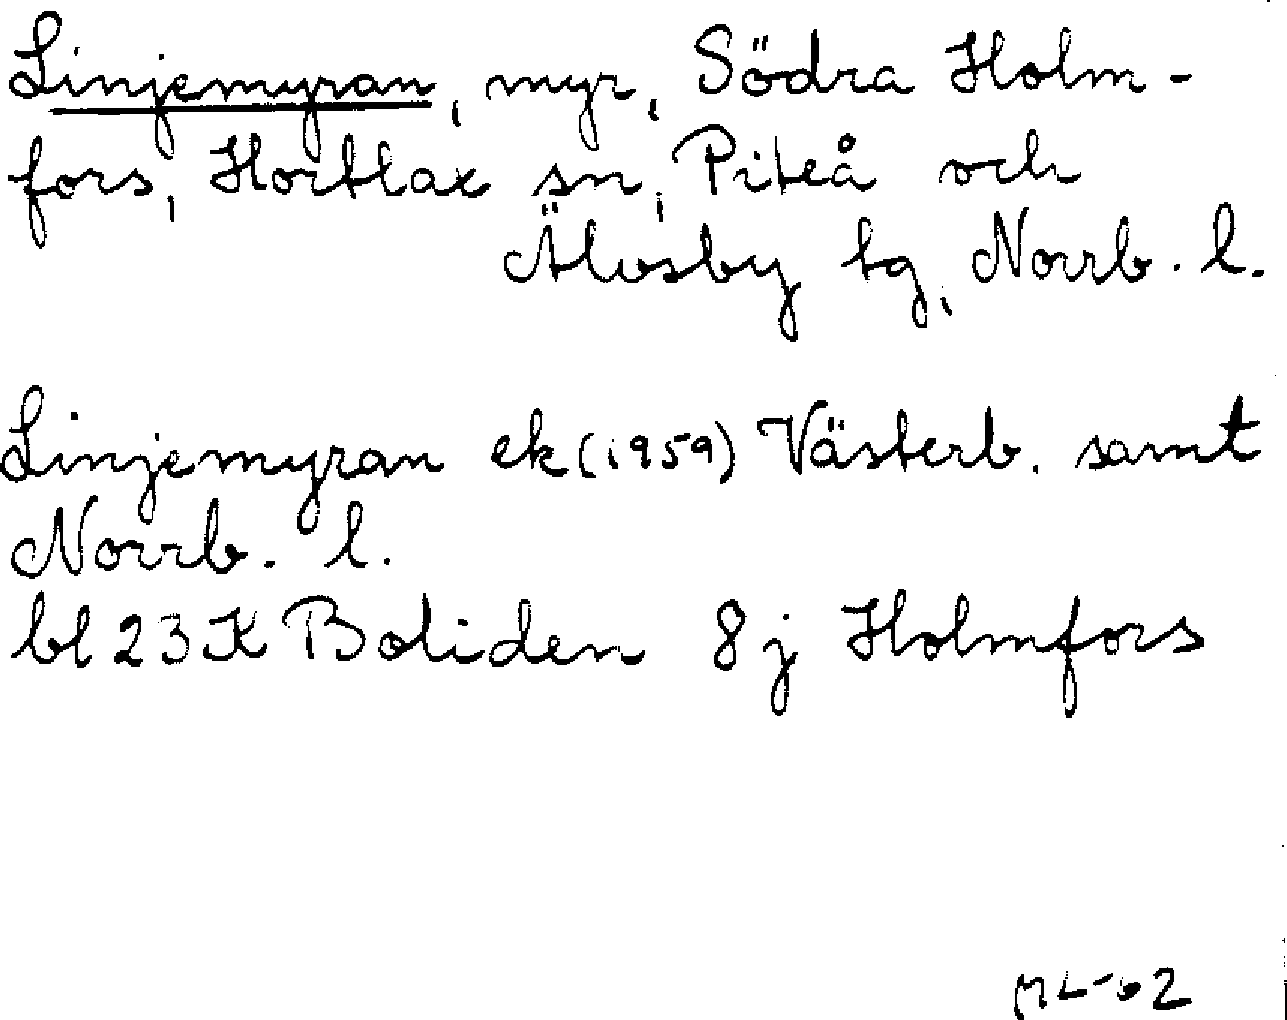 Linjemyran, myr, Södra Holm-
fors, Hortlax sn, Piteå och
Älvsby tg, Norrb. l.
Linjemyran ek (1959) Västerb. samt
Norrb. l.
bl 23K Boliden 8j Holmfors
ML-62